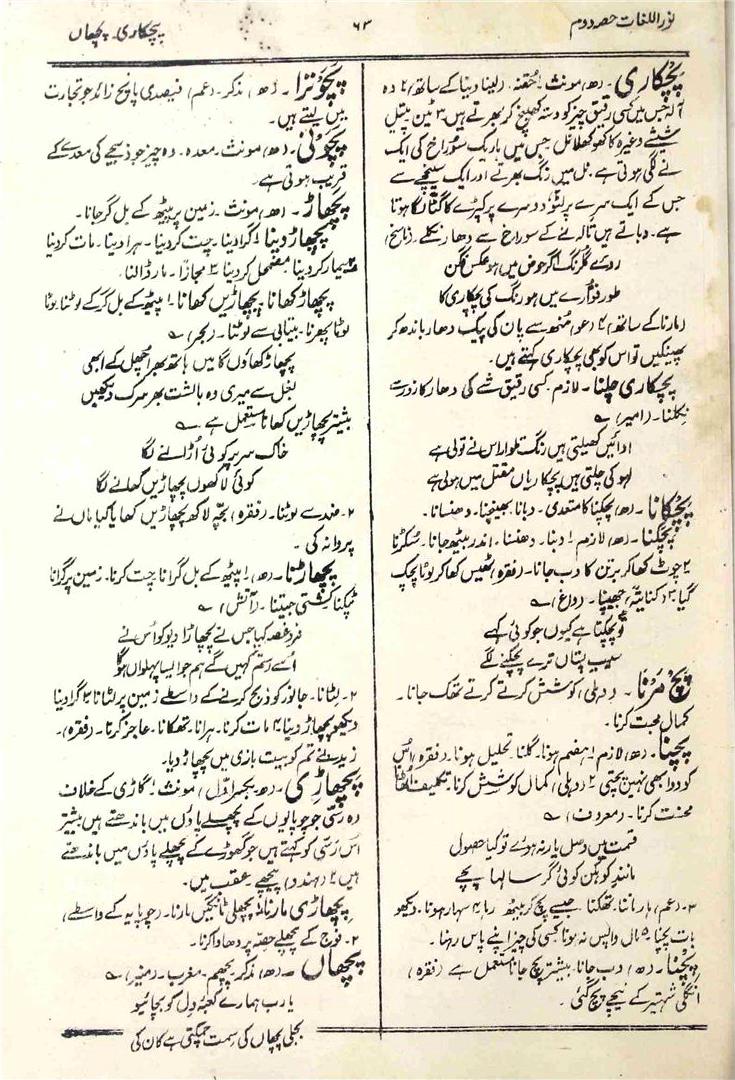 نور اللغات حصہ دوم
۶۳
پچکاری۔ پچھاں
پچکاری ۔ (ھ) مونث۔ حُقنہ۔ (لینا دینا کے ساتھ) ۲ وہ
آلہ جس میں کسی رقیق چیز کو دستہ کھینچ کر بھرتے ہیں ۳ ٹین پیتل
شیشے وغیرہ کا کھوکھلا نل جس میں باریک سوراخ کی ایک
نے لگی ہوتی ہے۔ نل میں رنگ بھرتے اور ایک سینچے سے
جس کے ایک سرے پر لٹو، دوسرے پر کپڑے کا گٹا لگا ہوتا
ہے۔ دباتے ہیں تاکہ نے کے سوراخ سے دھار نکلے (ناسخ)
روئے گلرنگ اگر حوض میں ہو عکس فگن
طور فوّارے میں ہو رنگ کی پچکاری کا
(مارنا کے ساتھ) ۴ (عو) مُنھ سے پان کی پیک دھار باندھ کر
پھینکیں تو اس کو بھی پچکاری کہتے ہیں۔
پچکاری چلنا ۔ لازم۔ کسی رقیق شے کی دھار کا زور سے
نکلنا۔ (امیر) ؎
ادائیں کھیلتی ہیں رنگ تلوار اس نے تولی ہے
لہو کی چلتی ہیں پچکاریاں مقتل میں ہولی ہے
پچکانا ۔ (ھ) پچکنا کا متعدی۔ دبانا۔ بھینچنا۔ دھنسانا۔
پچکنا ۔ (ھ) لازم ۱ دبنا۔ دھنسنا۔ اندر بیٹھ جانا۔ سُکڑنا
۲ چوٹ کھا کر برتن کا دب جانا۔ (فقرہ) ٹھیس کھا کر لوٹا پچک
گیا ۳ (کنایتہً) جھینپنا۔ (داغ) ؎
تو پچکتا ہے کیوں جو کوئی کہے
سیب پستاں ترے پچکنے لگے
پچ مرنا ۔ (دہلی) کوشش کرتے کرتے تھک جانا۔
کمال محنت کرنا۔
پچنا ۔ (ھ) لازم ۱ ہضم ہونا۔ گلنا۔ تحلیل ہونا۔ (فقرہ) اُس
کو دوا بھی نہیں پچتی ۲ (دہلی) کمال کوشش کرنا۔ تکلیف اٹھانا
محنت کرنا۔ (معروف) ؎
قسمت میں وصل یار نہ ہووے تو کیا حصول
مانند کوہکن کوئی گر سالہا پچے
۳۔ (عم) ہار ماننا۔ تھکنا۔ جیسے پچ کر بیٹھ رہا ۴ سہار ہونا۔ دیکھو
بات پچنا ۵ مال واپس نہ ہونا کسی کی چیز اپنے پاس رہنا۔
پچنا ۔ (ھ) دب جانا۔ بیشتر پچ جانا مستعمل ہے (فقرہ)
انگلی شہتیر کے نیچے پچ گئی۔
پچوترا ۔ (ھ) مذکر۔ (عم) فیصدی پانچ زائد جو تجارت
میں لیتے ہیں۔
پچونی ۔ (ھ) مونث۔ معدہ۔ وہ چیز جو ذبیحے کی معدے کے
قریب ہوتی ہے۔
پچھاڑ ۔ (ھ) مونث۔ زمین پر پیٹھ کے بل گر جانا۔
پچھاڑ دینا ۱ گرا دینا۔ چت کر دینا۔ ہرا دینا۔ مات کر دینا
۲ بیمار کر دینا مضمحل کر دینا ۳ مجازاً۔ مار ڈالنا۔
پچھاڑ کھانا پچھاڑیں کھانا ۔ ۱ پیٹھ کے بل گر کے لوٹنا لوٹا
لوٹا پھرنا۔ بیتابی سے لوٹنا۔ (بحر) ؎
پچھاڑ کھاؤں گا میں ہاتھ بھر اُچھل کے ابھی
بغل سے میری وہ بالشت بھر سرک دیکھیں
بیشتر پچھاڑیں کھانا مستعمل ہے ؎
خاک سر پر کوئی اُڑانے لگا
کوئی لاکھوں پچھاڑیں کھانے لگا
۲۔ ضد سے لوٹنا۔ (فقرہ) بچّہ لاکھ پچھاڑیں کھایا کیا ماں نے
پروا نہ کی۔
پچھاڑنا ۔ (ھ) ۱ پیٹھ کے بل گرانا چت کرنا۔ زمین پر گرانا
پٹکنا کشتی جیتنا۔ (آتش) ؎
فرد غصہ کہا جس نے پچھاڑا دیو کو اُس نے
اُسے رستم کہیں گے ہم جو ایسا پہلواں ہوگا
۲۔ لٹانا۔ جانور کو ذبح کرنے کے واسطے زمین پر لٹانا ۳ گرا دینا
دیکھو پچھاڑ دینا ۴ مات کرنا۔ ہرانا۔ تھکانا۔ عاجز کرنا۔ (فقرہ)
زید نے تم کو بیت بازی میں پچھاڑ دیا۔
پچھاڑی ۔ (ھ۔ بکسر اوّل) مونث ۱ گاڑی کے غلاف
وہ رسّی جو چوپایوں کے پچھلے پاؤں میں باندھتے ہیں بیشتر
اُس رسّی کو کہتے ہیں جو گھوڑے کے پچھلے پاؤں میں باندھتے
ہیں ۲ (ہندو) پیچھے۔ عقب میں۔
پچھاڑی مارنا ۔ پچھلی ٹانگیں مارنا۔ (چوپایہ کے واسطے)
۲۔ فوج کے پچھلے حصّہ پر دھاوا کرنا۔
پچھاں ۔ (ھ) مذکر۔ پچھم۔ مغرب۔ (منیر) ؎
یا رب ہمارے کعبۂ دل کو بچائیو
بجلی پچھاں کی سمت چمکتی ہے کان کی